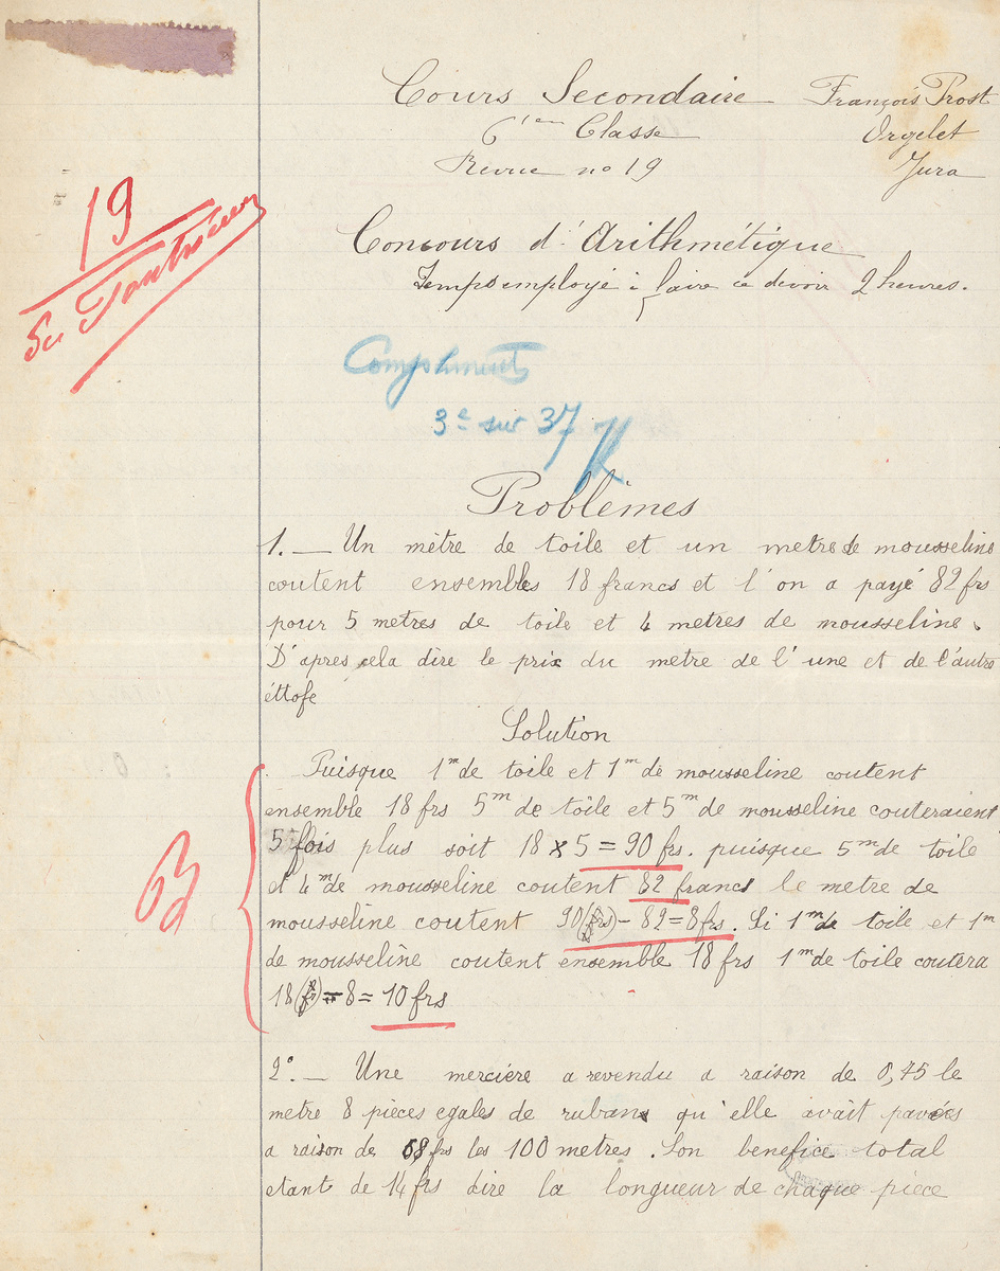 Cours Secondaire
François Prost
6ième Classe
Orgelet
Revue no 19
Jura
19
Concours d'Arithmétique
Temps employé à faire ce devoir 2 heures.
Compliments
3e sur 37
Problèmes
1. — Un mètre de toile et un metre de mousseline
coutent ensembles 18 francs et l'on a payé 82 frs
pour 5 metres de toile et 4 metres de mousseline.
D'apres cela dire le prix du metre de l'une et de l'autre
éttofe
Solution
Puisque 1m de toile et 1m de mousseline coutent
ensemble 18 frs 5m de toile et 5m de mousseline couteraient
5 fois plus soit 18 x 5 = 90 frs. puisque 5m de toile
et 4m de mousseline coutent 82 francs le metre de
mousseline coutent 90(frs) - 82 = 8 frs. Si 1m de toile et 1m
de mousseline coutent ensemble 18 frs 1m de toile coutera
18(frs) - 8 = 10 frs
2°. — Une mercière a revendu a raison de 0,75 le
metre 8 pièces egales de rubans qu'elle avait payées
a raison de 68 frs les 100 metres. Son benefice total
etant de 14 frs dire la longueur de chaque pièce